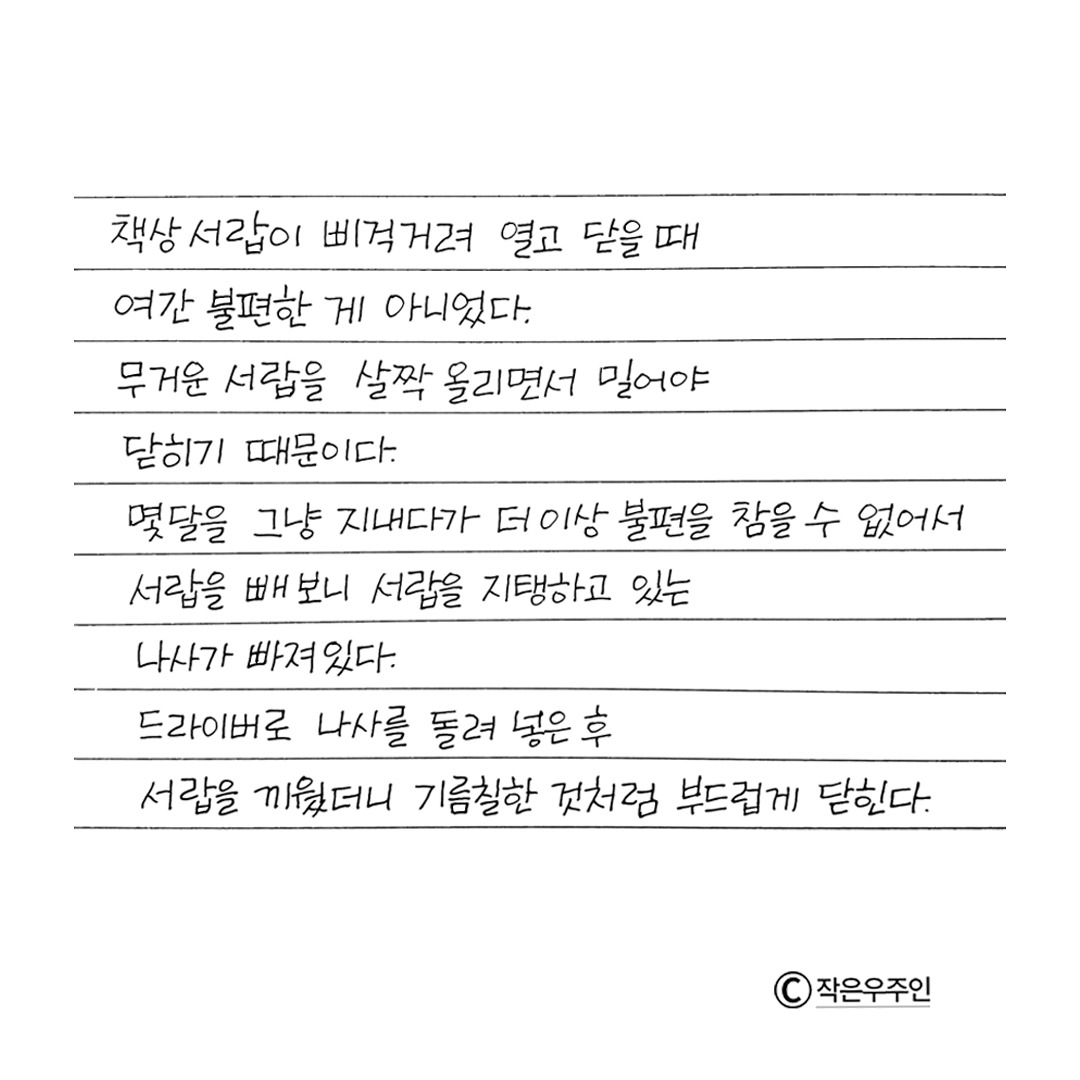 책상 서랍이 삐걱거려 열고 닫을 때
여간 불편한 게 아니었다.
무거운 서랍을 살짝 올리면서 밀어야
닫히기 때문이다.
몇달을 그냥 지내다가 더 이상 불편을 참을 수 없어서
서랍을 빼보니 서랍을 지탱하고 있는
나사가 빠져있다.
드라이버로 나사를 돌려 넣은 후
서랍을 끼웠더니 기름칠한 것처럼 부드럽게 닫힌다.
ⓒ 작은우주인